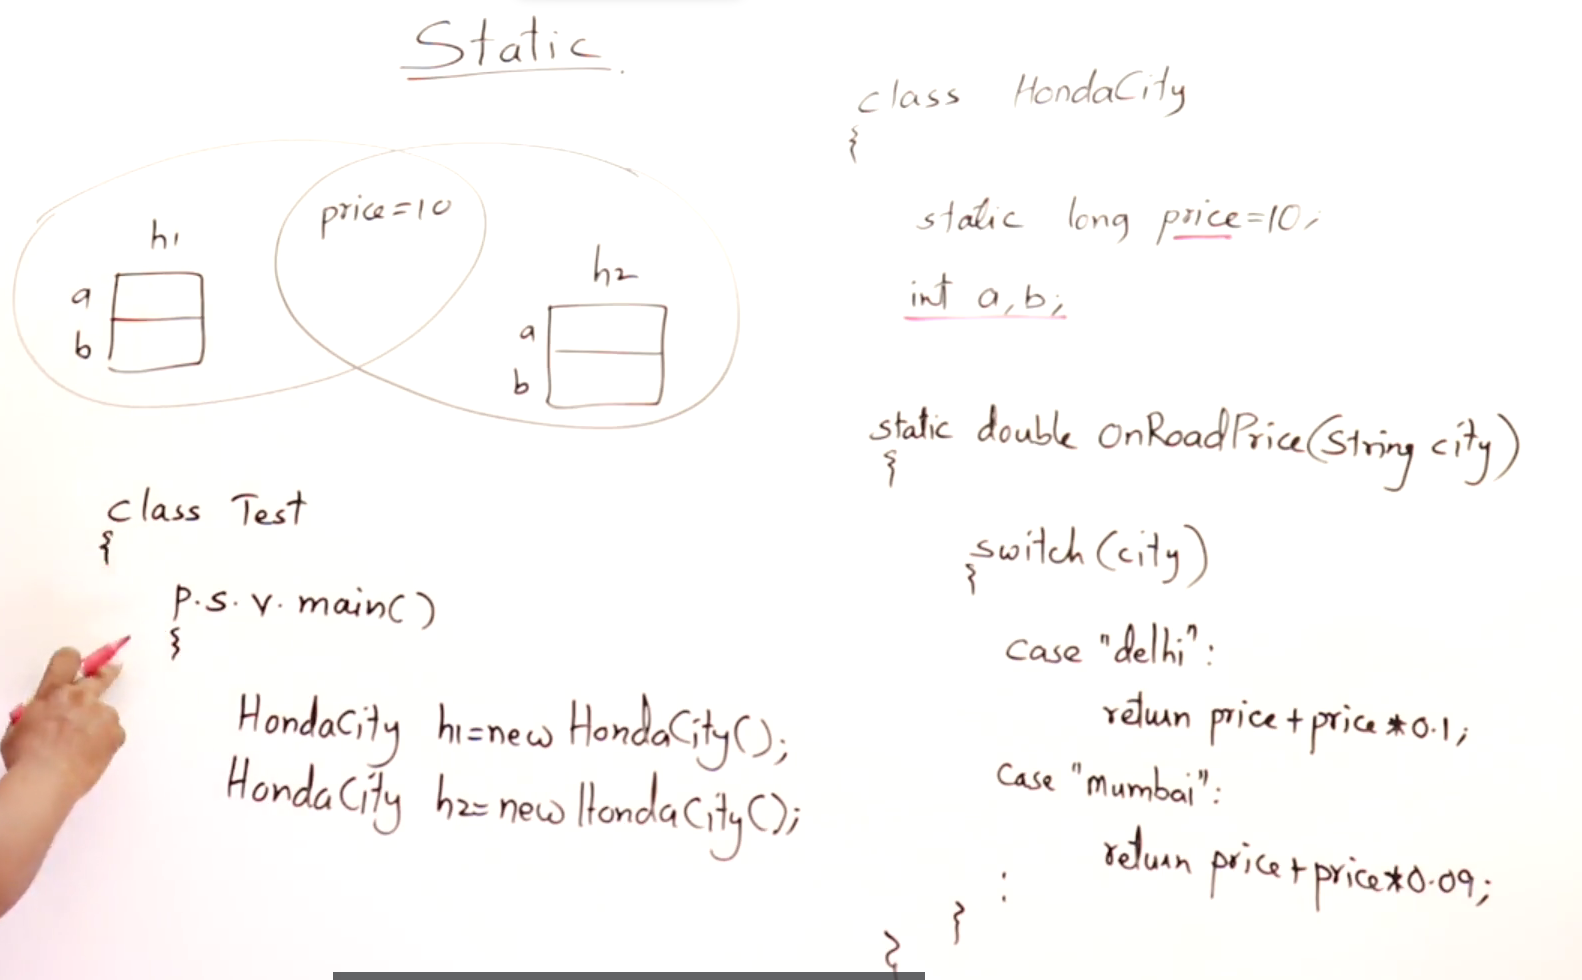 Static
price=10
h1
a
b
h2
a
b
class Test
{
p.s.v.main()
{
HondaCity h1=new HondaCity();
HondaCity h2=new HondaCity();
class HondaCity
{
static long price=10;
int a,b;
static double onRoadPrice(String city)
{
switch(city)
{
case "delhi":
return price+price*0.1;
case "mumbai":
return price+price*0.09;
:
}
}